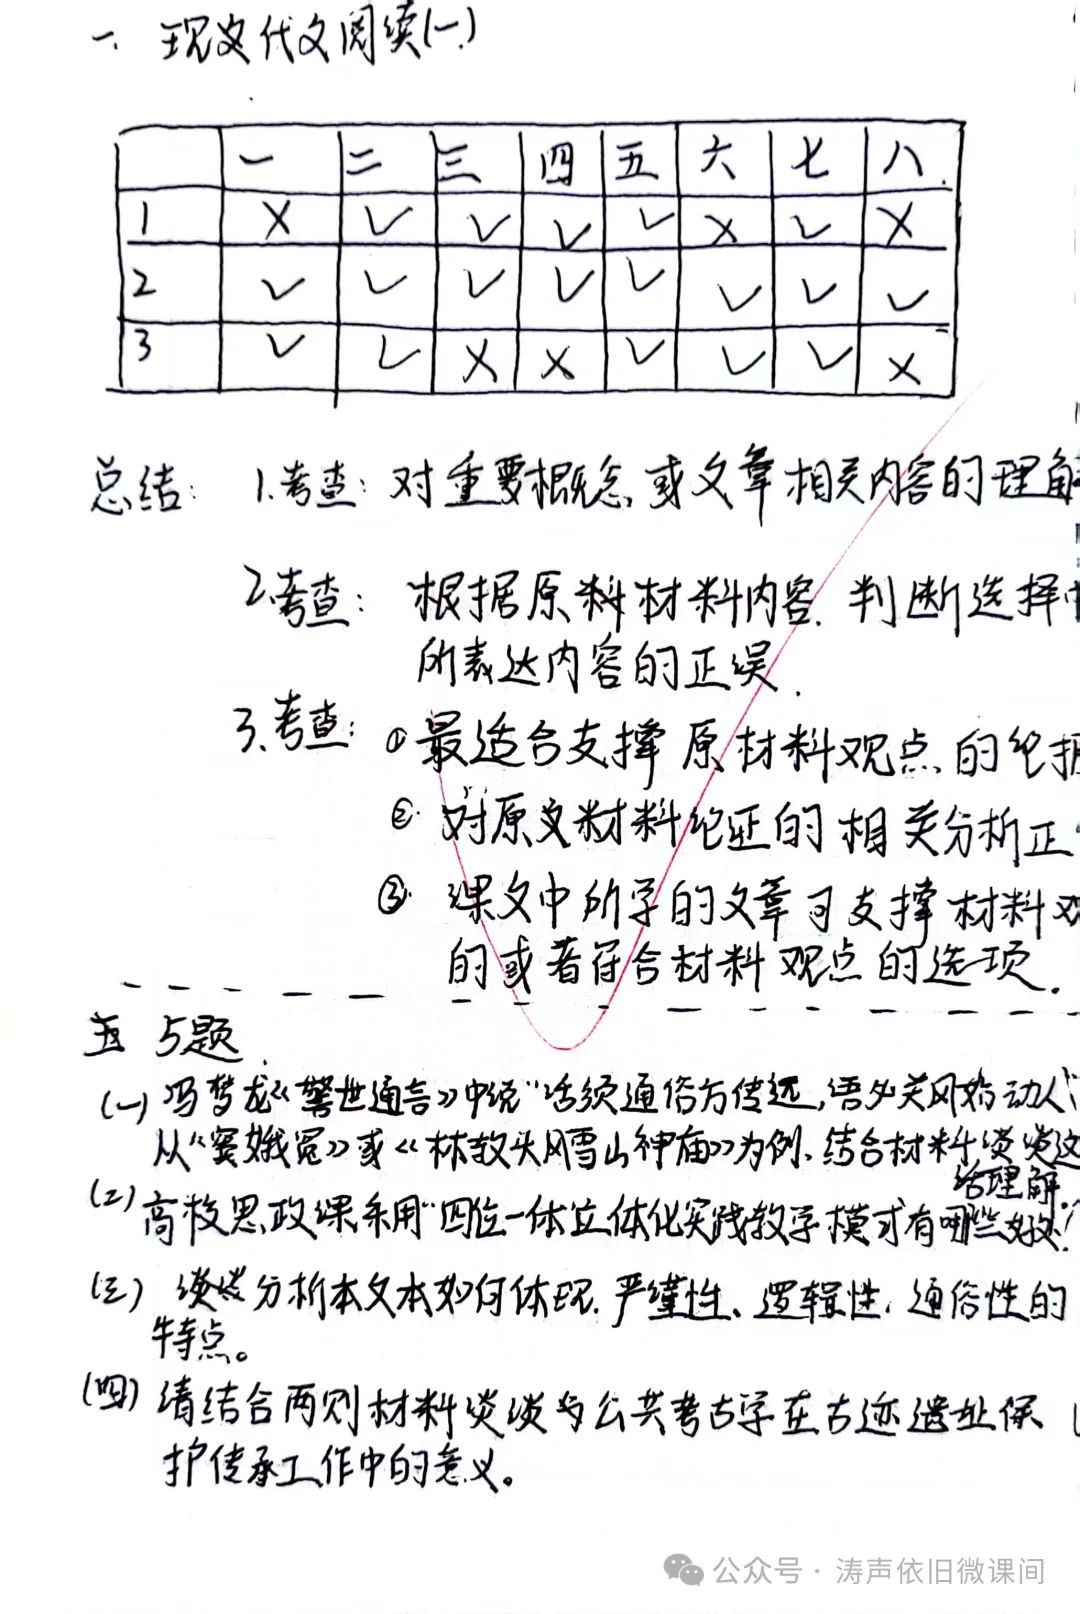 一. 现代文阅读(一)
一 二 三 四 五 六 七 八
1 × ✓ ✓ ✓ ✓ × ✓ ×
2 ✓ ✓ ✓ ✓ ✓ ✓ ✓ ✓
3 ✓ ✓ × × ✓ ✓ ✓ ×
总结: 1.考查: 对重要概念或文章相关内容的理解
2.考查: 根据原料材料内容.判断选择
所表达内容的正误.
3.考查: ①最适合支撑原材料观点的论据
②对原文材料论证的相关分析正
③课文中所学的文章可支撑材料观
的或者符合材料观点的选项.
五 5题
(一)冯梦龙《警世通言》中说"话须通俗方传远,语必关风始动人"
从《窦娥冤》或《林教头风雪山神庙》为例,结合材料谈谈这
话理解.
(二)高校思政课采用"四位一体立体化实践教学模式有哪些好处?
(三) 谈谈分析本文本如何体现.严谨性、逻辑性,通俗性的
特点。
(四)请结合两则材料谈谈与公共考古学在古迹遗址保
护传承工作中的意义。
公众号·涛声依旧微课间